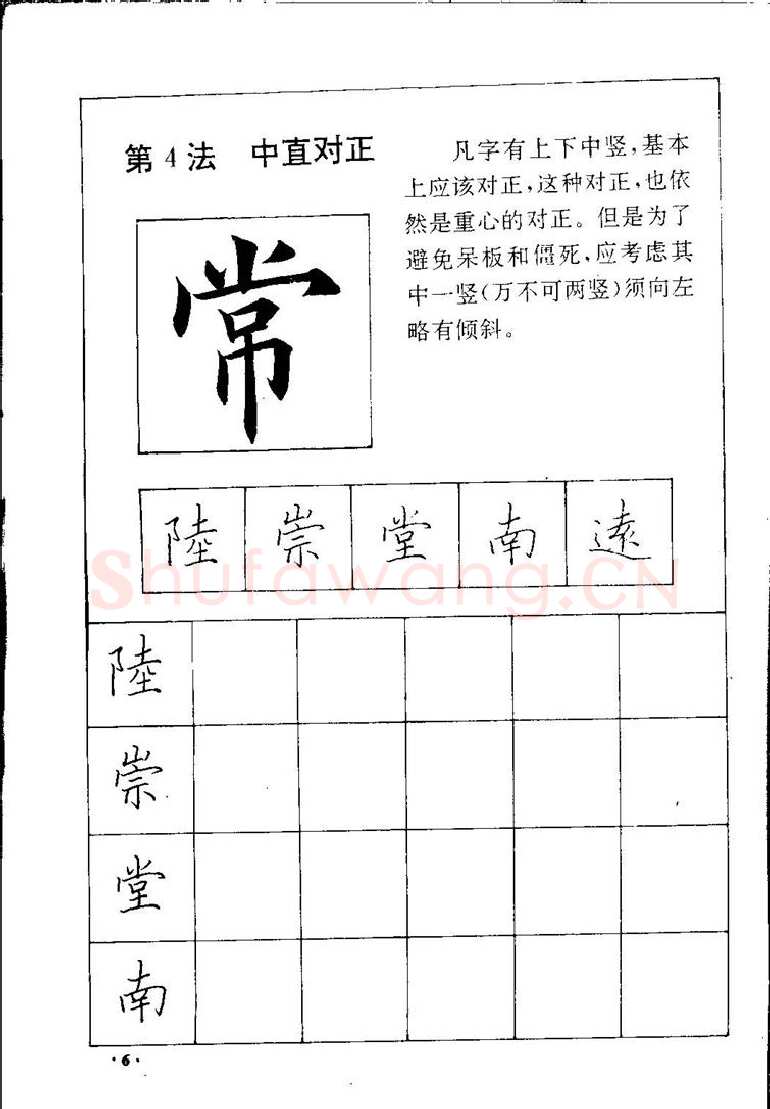 第4法 中直对正
凡字有上下中竖,基本
上应该对正,这种对正,也依
然是重心的对正。但是为了
避免呆板和僵死,应考虑其
中一竖(万不可两竖)须向左
略有倾斜。
常
陸 崇 堂 南 遠
shufawang.CN
陸
崇
堂
南
·6·